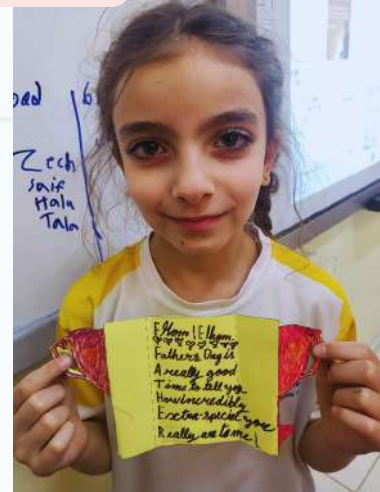 bad
b
Zech
saif
Hala
Tala
Fathers Day is
A really good
Time to tell you
How Incredibly
Exctra-special you
Really are to me!